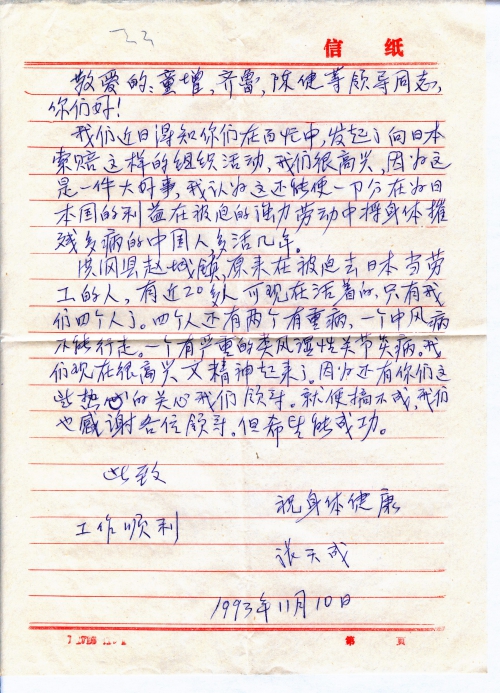 信 纸
敬爱的:童增,齐雷,陈健等领导同志,
你们好!
我们近日得知你们在百忙中,发起了向日本
索赔这样的组织活动,我们很高兴,因为这
是一件大好事,我认为这还能使一部分在为日
本国的利益在被迫的强力劳动中将身体摧
残多病的中国人多活几年。
洪洞县赵城镇,原来在被迫去日本当劳
工的人,有近20多人可现在活着的,只有我
们四个人了。四个人还有两个有重病,一个中风病
不能行走。一个有严重的类风湿性关节炎病。我
们现在很高兴又精神起来了。因为还有你们这
些热心的关心我们领导。就使搞不成,我们
也感谢各位领导。但希望能成功。
此致
祝身体健康
工作顺利
张天成
1993年11月10日
第 页